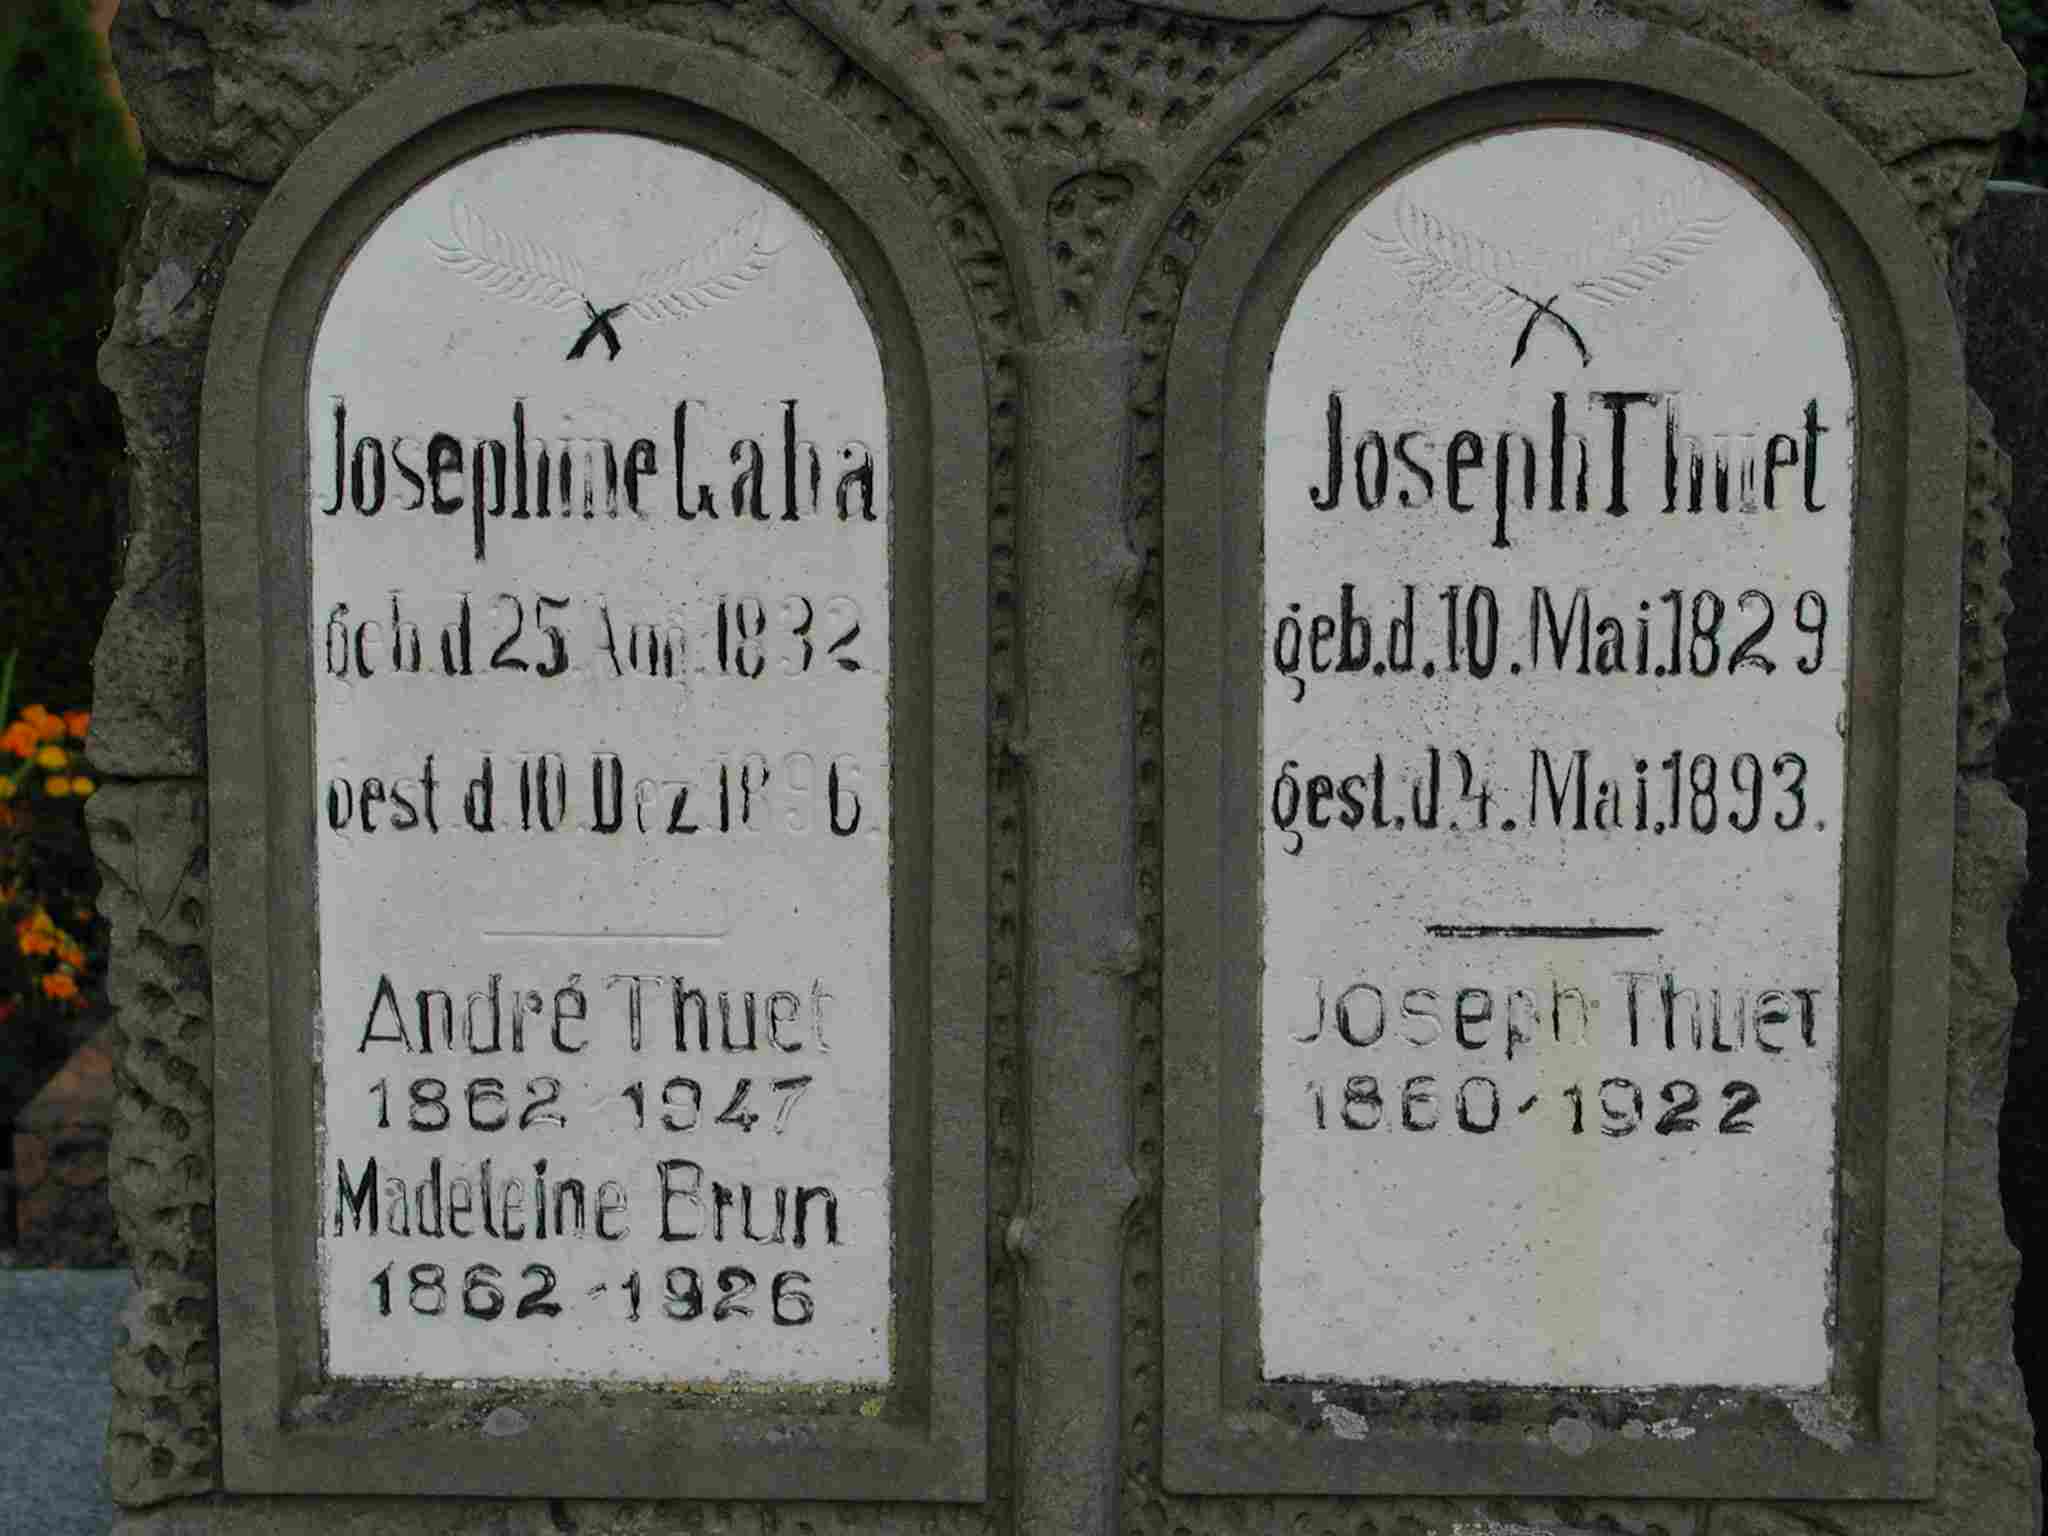 Josephine Gaba
geb.d.25.Aug.1832
gest.d.10.Dez.1896
André Thuet
1862-1947
Madeleine Brun
1862-1926
Joseph Thuet
geb.d.10.Mai.1829
gest.d.4.Mai.1893.
Joseph Thuet
1860-1922